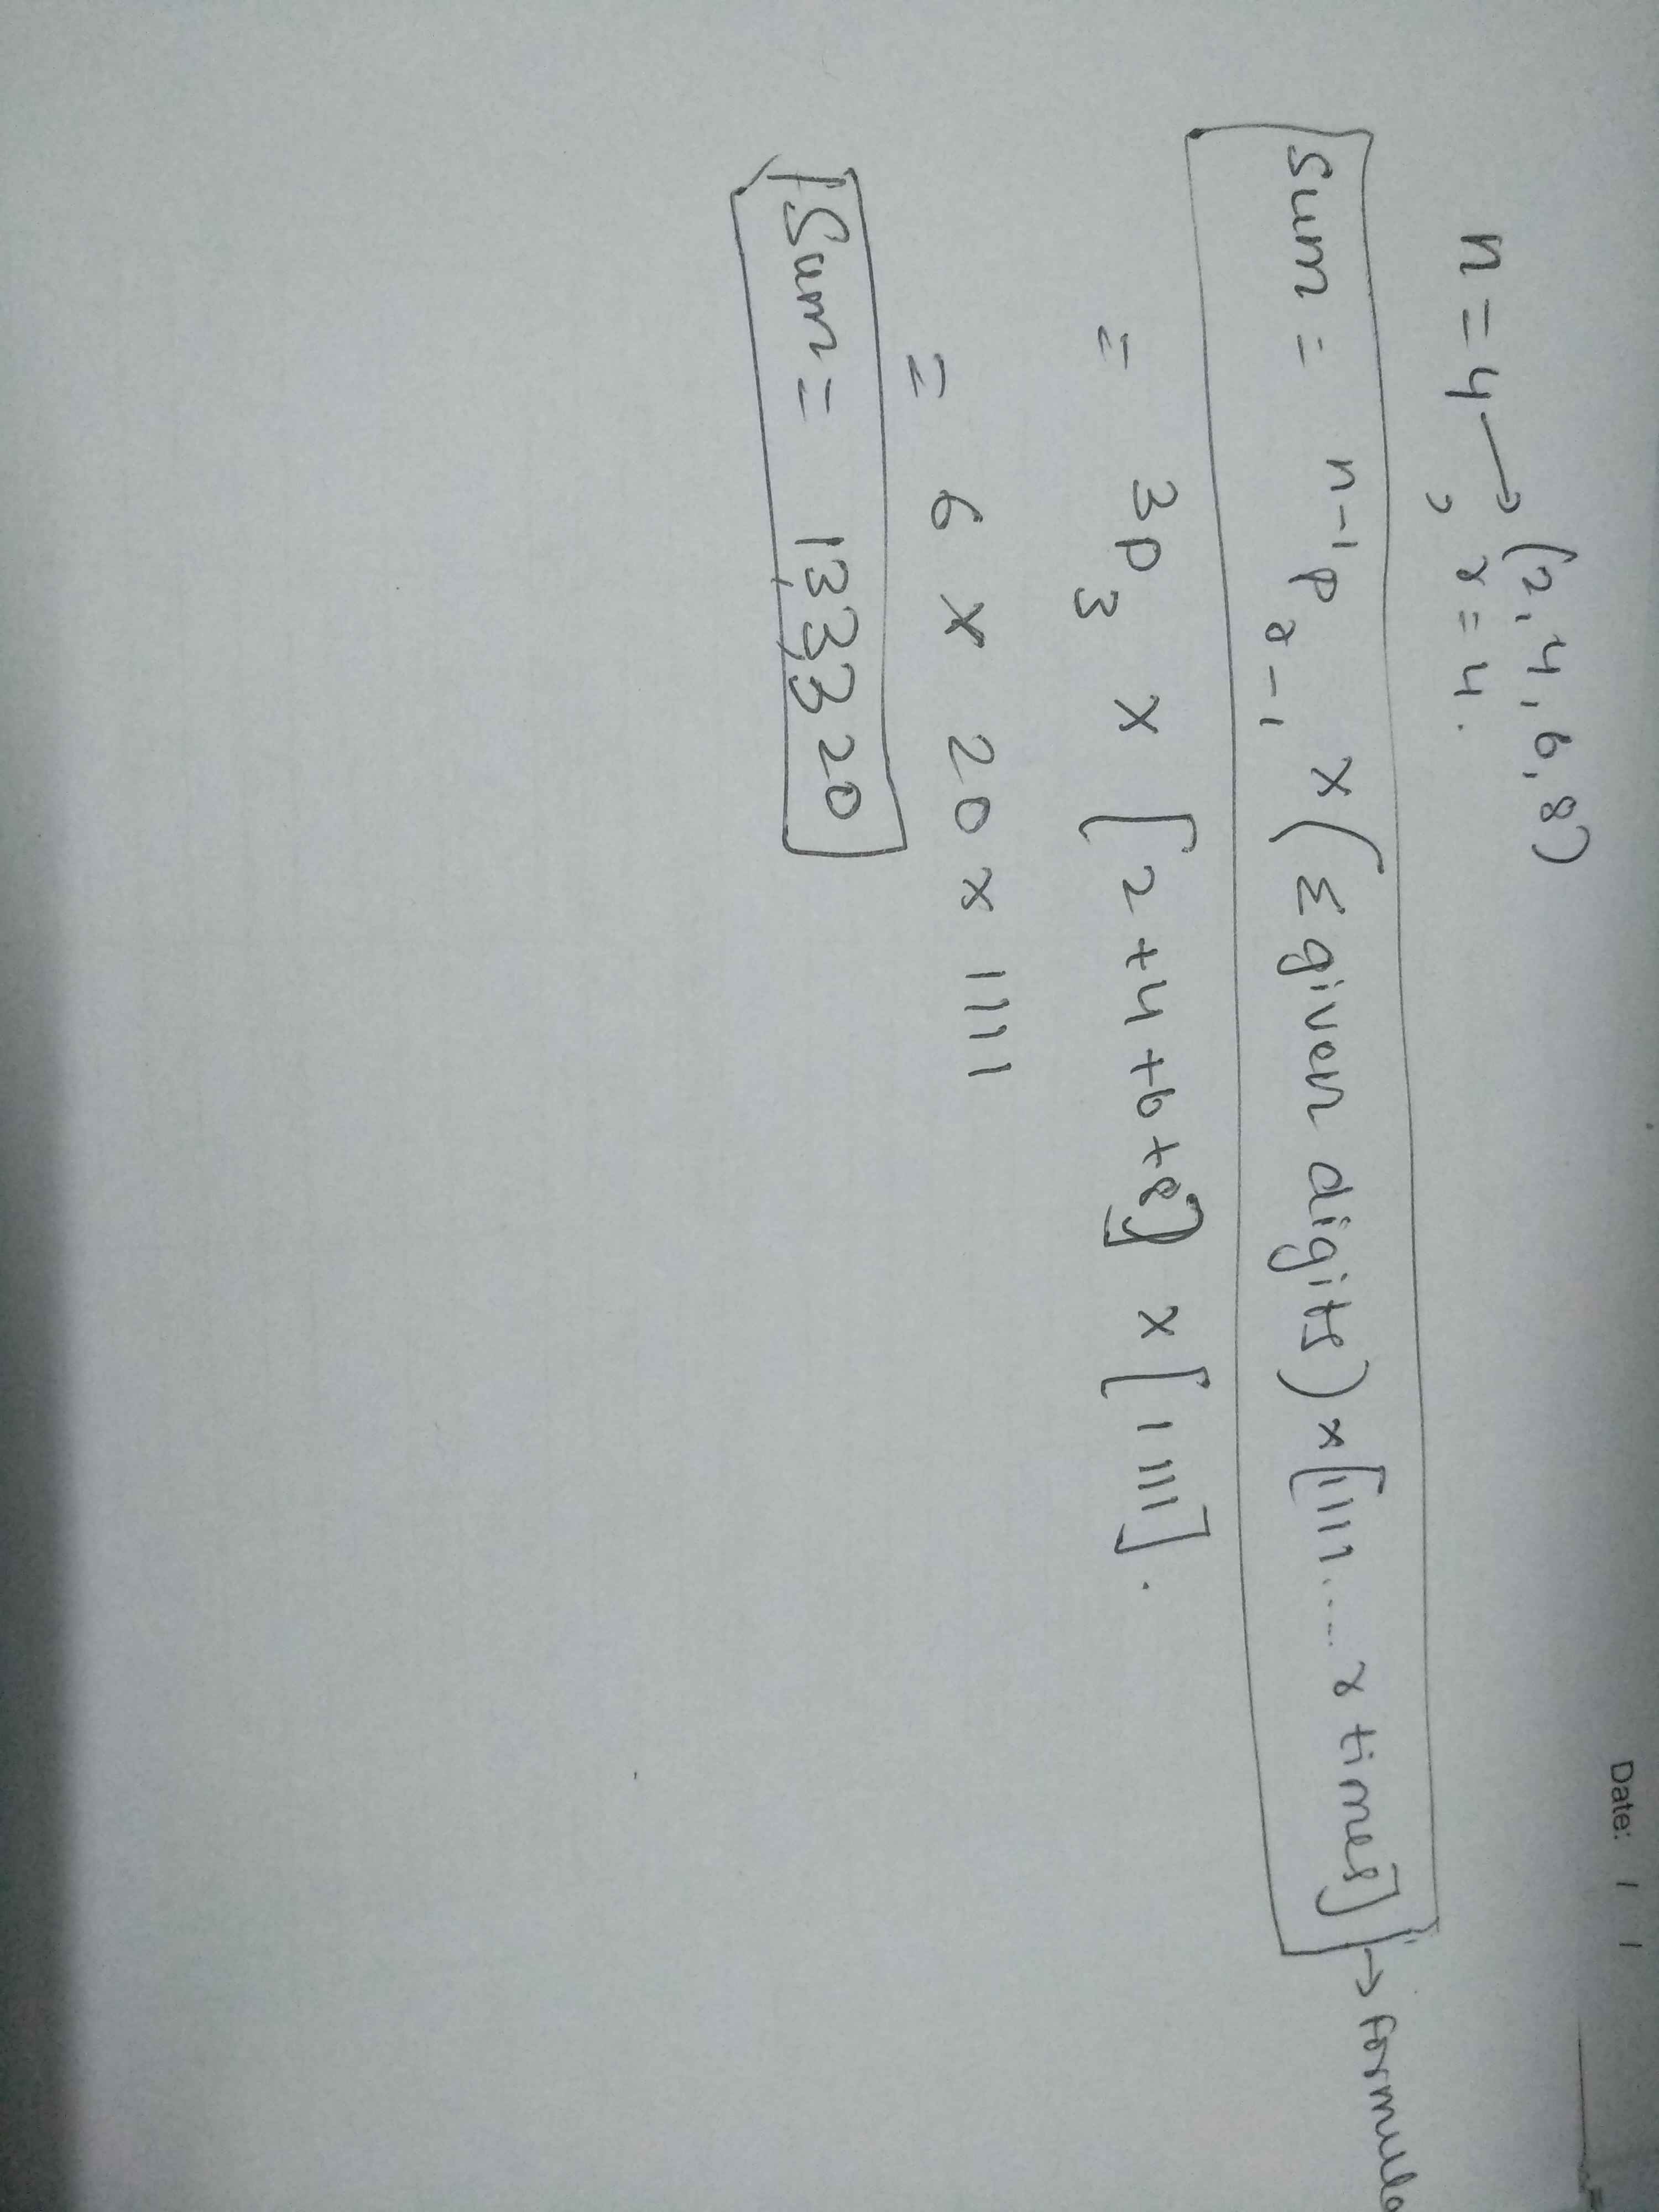 Date: / /
n = 4 → (2, 4, 6, 8)
, r = 4.
Sum = n-1 P r-1 × (Σ given digits) × [1111 .... r times] → formula
= 3P3 × [2+4+6+8] × [1111].
= 6 × 20 × 1111
Sum = 1,33,320